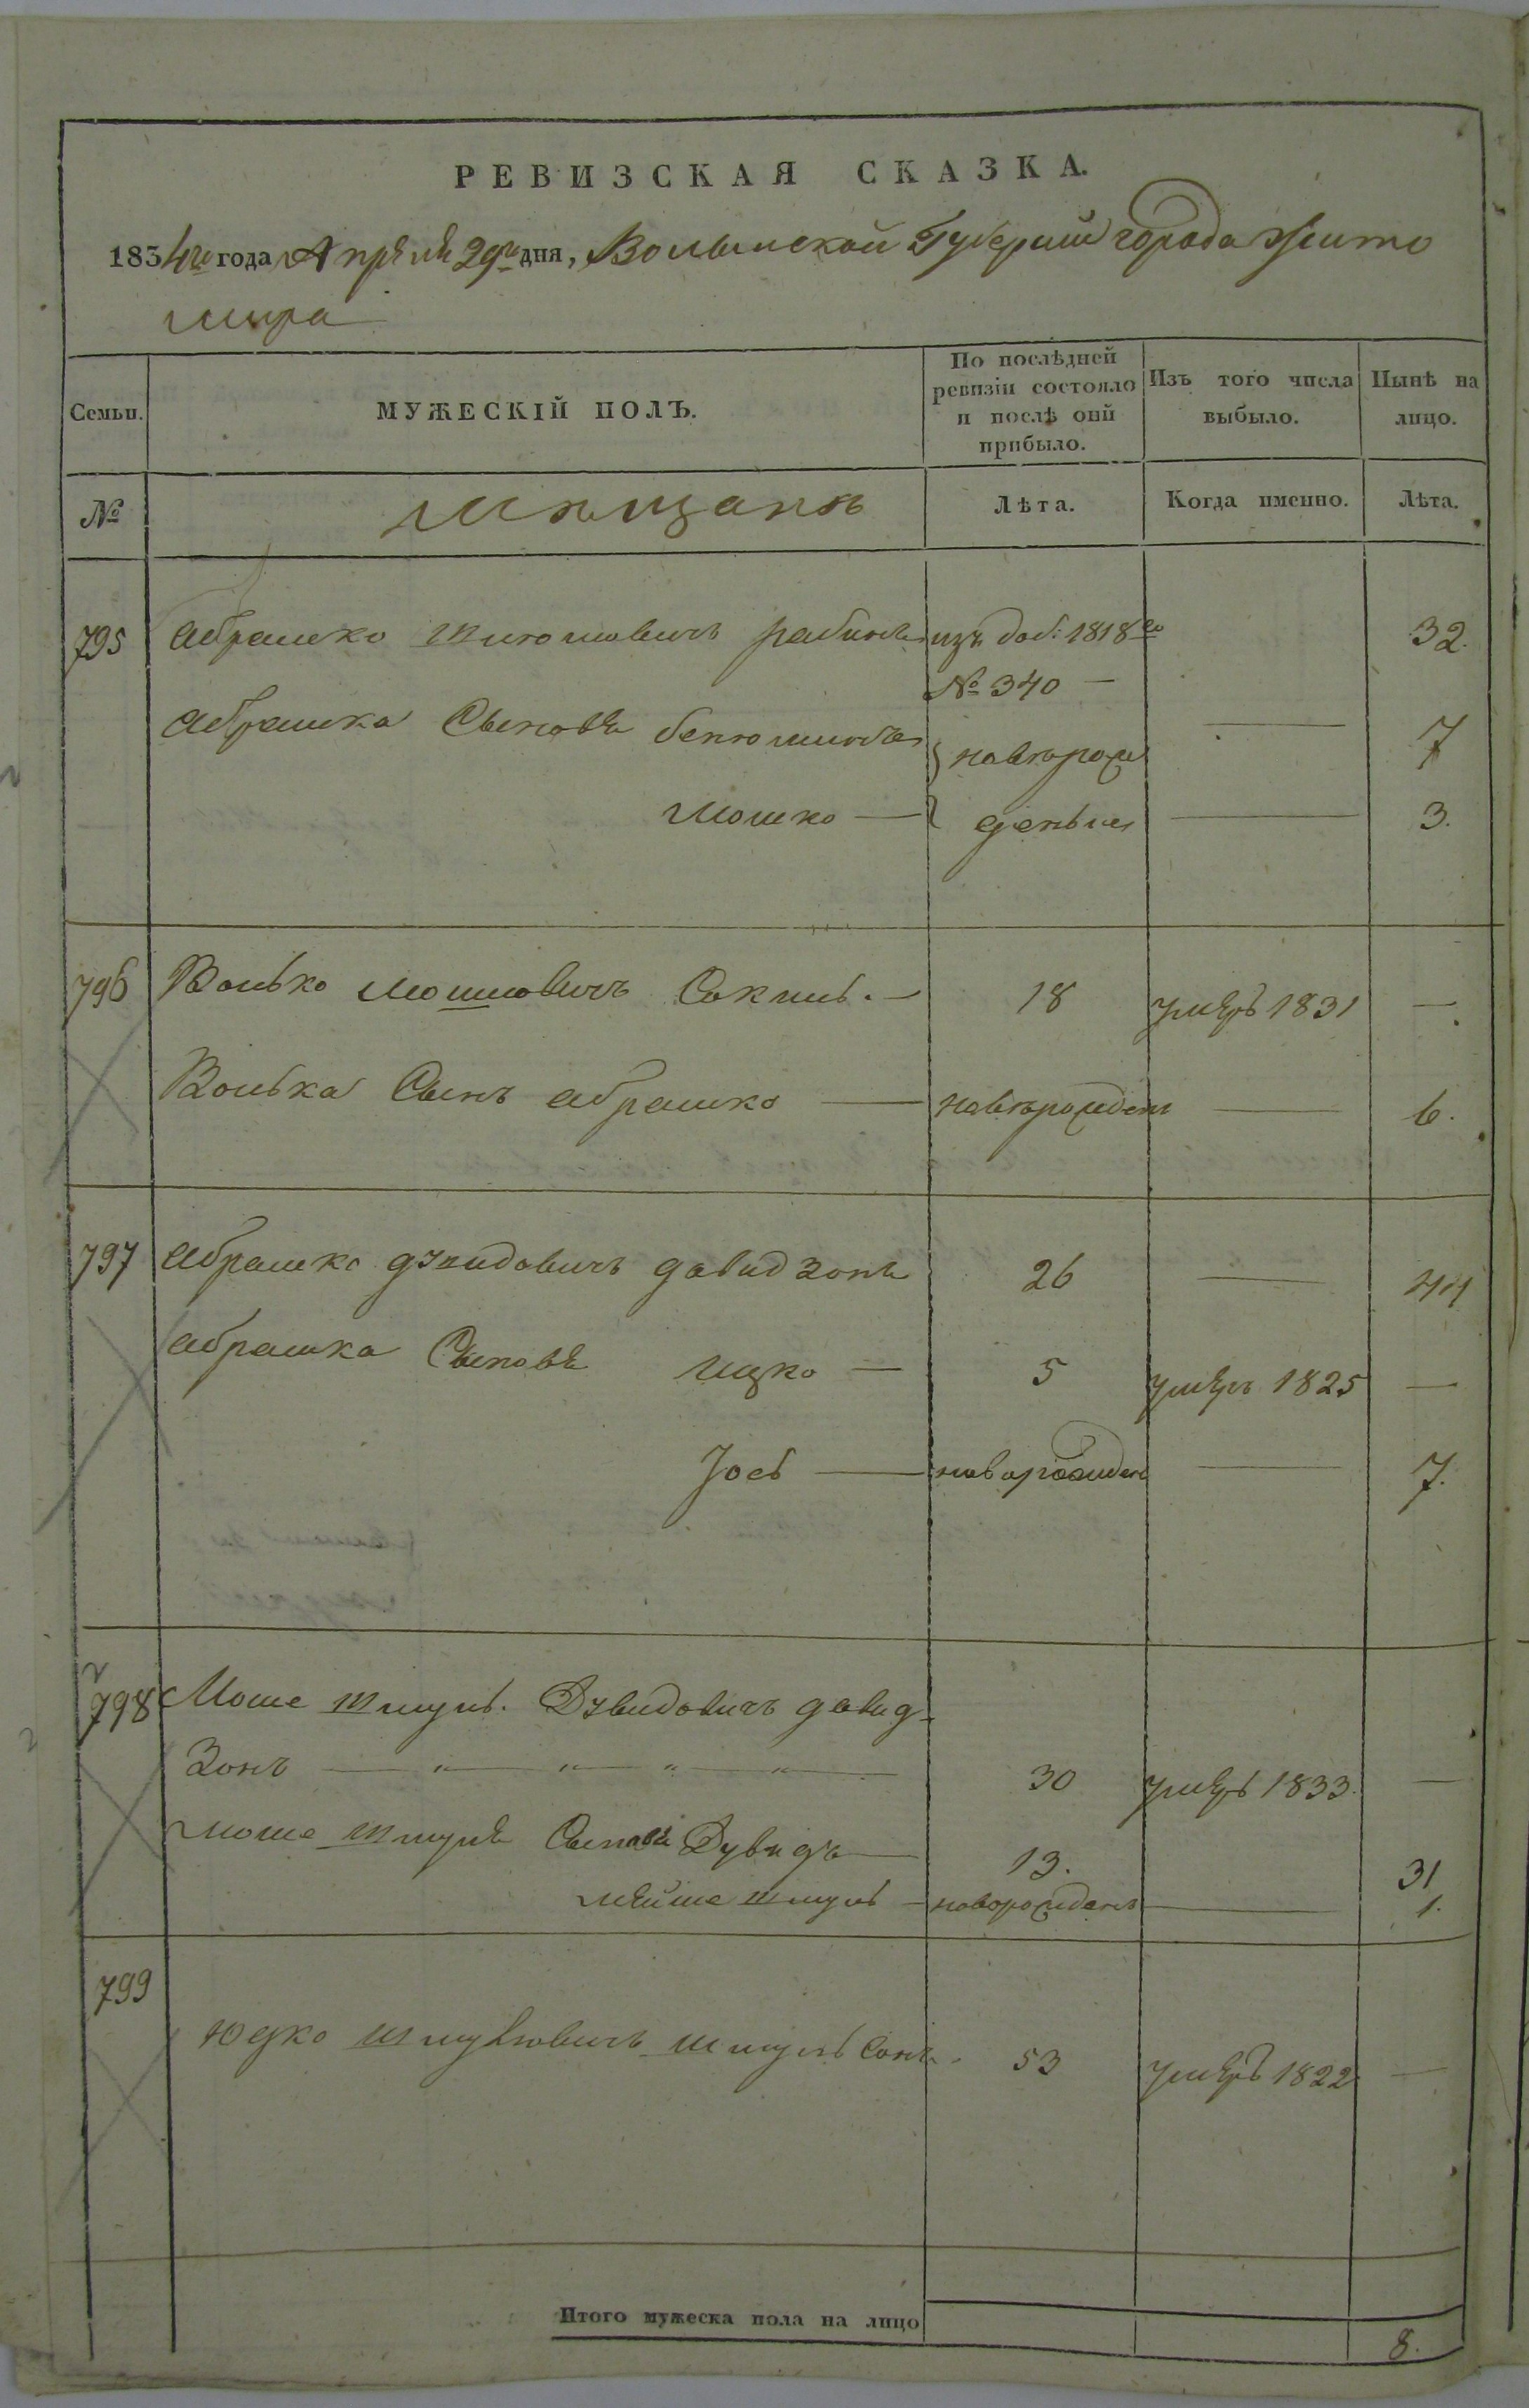 РЕВИЗСКАЯ СКАЗКА.
1834го года Апреля 29го дня, Волынской Губернии города Жито
мира
Семьи.
МУЖЕСКІЙ ПОЛЪ.
По послѣдней ревизіи состояло и послѣ оній прибыло.
Изъ того числа выбыло.
Нынѣ на лицо.
№
Мѣщанъ
Лѣта.
Когда именно.
Лѣта.
795 Абрамко рабинъ изъ доб: 1818го 32.
№ 340 —
Абрамка Сыновя бенюминъ новорож 7
Мошко — деные 3.
796 Волько Мошковичъ — 18 умеръ 1831 —
Волька Сынъ абрамко — новорожденъ — 6.
797 Абрамко дувидовичъ давидзонъ 26 — 44
абрамка Сыновя Ицко — 5 умеръ 1825 —
Іось — новорожденъ — 7.
798 Моше шмуль Дувидовичъ давид-
зонъ — 30 умеръ 1833. —
моше шмуля Сыновя Дувидъ — 13. 31
мейше шмуль — новорожденъ — 1.
799
Юдко Шмулевичъ шмульсонъ 53 умеръ 1822 —
Итого мужеска пола на лицо 8.